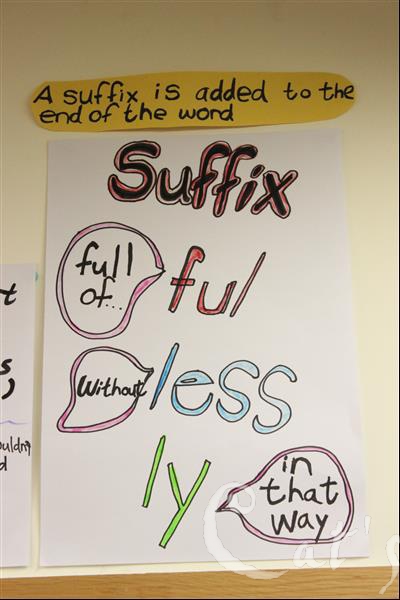 A suffix is added to the
end of the word
Suffix
full
of...
ful
Without
less
ly
in
that
way
Cat's